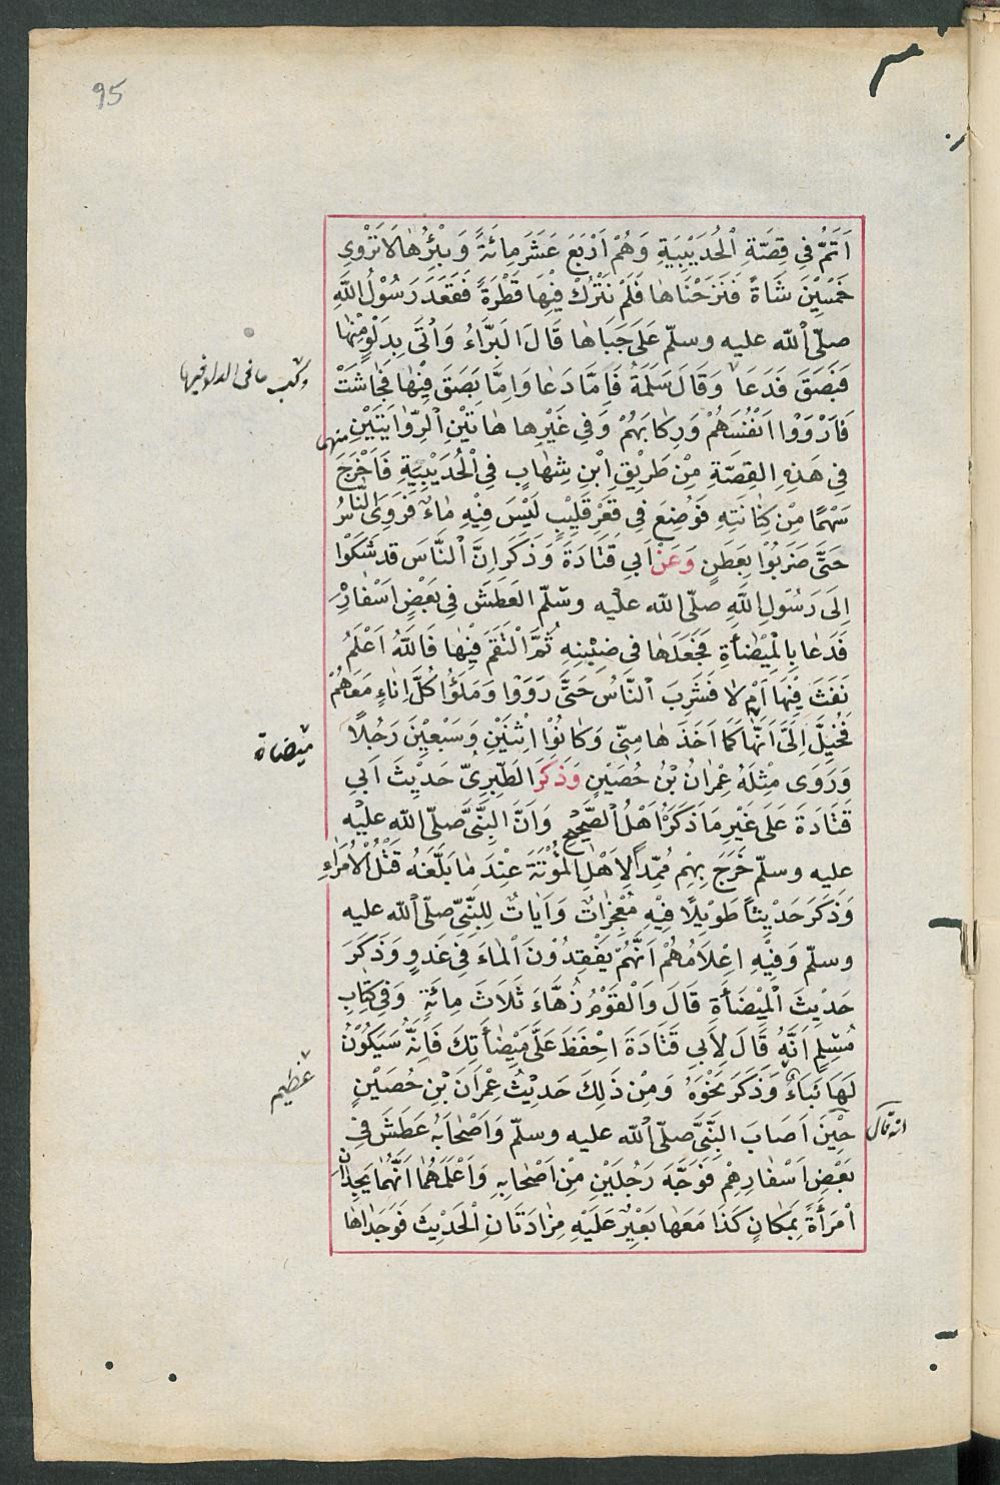 95
اَتَمُّ فِي قِصَّةِ الْحُدَيْبِيَةِ وَهُمْ اَرْبَعَ عَشَرَ مِائَةً وَبِئْرُهَا لَا تَرْوِي
خَمْسِيْنَ شَاةً فَنَزَحْنَاهَا فَلَمْ نَتْرُكْ فِيْهَا قَطْرَةً فَقَعَدَ رَسُوْلُ اللهِ
صلّى الله عليه وسلّم عَلَى جَبَاهَا قَالَ الَبَرَّاءُ وَاُتَى بِدَلْوٍ مِنْهَا
فَبَصَقَ فَدَعَا وَقَالَ سَلَمَةُ فَاِمَّا دَعَا وَاِمَّا بَصَقَ فِيْهَا فَجَاشَتْ
فَاَرْوَوْا اَنْفُسَهُمْ وَرِكَابَهُمْ وَفِي غَيْرِهَا هَاتَيْنِ الرِّوَايَتَيْنِ
فِي هَذِهِ القِصَّةِ مِنْ طَرِيْقِ اِبْنِ شِهَابٍ فِي الْحُدَيْبِيَةِ فَاَخْرَجَ
سَهْمًا مِنْ كِنَانَتِهِ فَوُضِعَ فِي قَعْرِ قَلِيْبٍ لَيْسَ فِيْهِ مَاءٌ فَرَوَى النَّاسُ
حَتَّى ضَرَبُوْا بِعَطَنٍ وَعَنْ اَبِي قَتَادَةَ وَذَكَرَ اِنَّ النَّاسَ قد شَكَوْا
اِلَى رَسُوَلِ اللهِ صلّى الله عليه وسلّم العَطَشَ فِي بَعْضِ اَسْفَارِهِ
فَدَعَا بِالْمِيْضَأَةِ فَجَعَلَهَا فى ضِبْنِهِ ثُمَّ الْتَقَمَ فَيْهَا فَاللهُ اَعْلَمُ
نَفَثَ فِيْهَا اَمْ لَا فَشَرِبَ النَّاسُ حَتَّى رَوَوْا وَمَلَؤُا كُلَّ اِنَاءٍ مَعَهُمْ
فَخُيِّلَ اِلَىَّ اَنَّهَا كَمَا اَخَذَهَا مِنّى وَكَانُوْا اِثْنَيْنِ وَسَبْعِيْنَ رَجُلًا
وَرَوَى مِثْلَهُ عِمْرَانُ بْنُ حُصَيْنٍ وَذَكَرَ الطَّبِرِىّ حَدِيْثَ اَبِي
قَتَادَةَ عَلَى غَيْرِ مَا ذَكَرَهُ اَهْلُ الصَّحِيْحِ وَاَنَّ النَّبِىَّ صلّى الله عليه
عليه وسلّم خَرَجَ بِهِمْ مُمِدًّا لِاَهْلِ الْمُؤْتَةَ عِنْدَ مَا بَلَّغَهُ قَتْلُ الْاُمَرَاءِ
وَذَكَرَ حَدِيْثاً طَوِيْلًا فِيْهِ مُعْجِزَاتٌ وَاَيَاتٌ لِلنَّبِىِّ صلّى الله عليه
وسلّم وَفِيْهِ اِعْلَامُهُمْ اَنَّهُمْ يَفْقِدُوْنَ الْمَاءَ فِى غَدٍو وَذَكَرَ
حَدِيْثَ الْمِيْضَأَةِ قَالَ وَالْقَوْمُ زُهَّاءَ ثَلَاثَ مِائَةٍ وَفِي كِتَابِ
مُسْلِمٍ اَنَّهُ قَالَ لِاَبِي قَتَادَةَ احِْفَظَ عَلَىَّ مَيْضَأَتِكَ فَاِنَّهُ سَيَكُوْنُ
لَهَا نَبَاءٌ وَذَكَرَ نَحْوَهُ وَمِنْ ذَلِكَ حَدِيْثُ عِمْرَانَ بْنِ حُصَيْنٍ
حِيْنَ اَصَابَ النَّبِىَّ صلّى الله عليه وسلّم وَاَصْحَابَهُ عَطَشَ فِي
بَعْضِ اَسْفَارِهِمْ فَوَجَّهَ رَجُلَيْنِ مِنْ اَصْحَابِهِ وَاَعْلَمَهُمَا اَنَّهُمَا يَجِدَانِ
اِمْرَأَةً بِمَكَانِ كَذَا مَعَهَا بَعِيْرٌ عَلَيْهِ مِزَادَتَانِ الْحَدِيْثَ فَوَجَدَاهَا
منهما
ميضاة
عظيم
انه قال